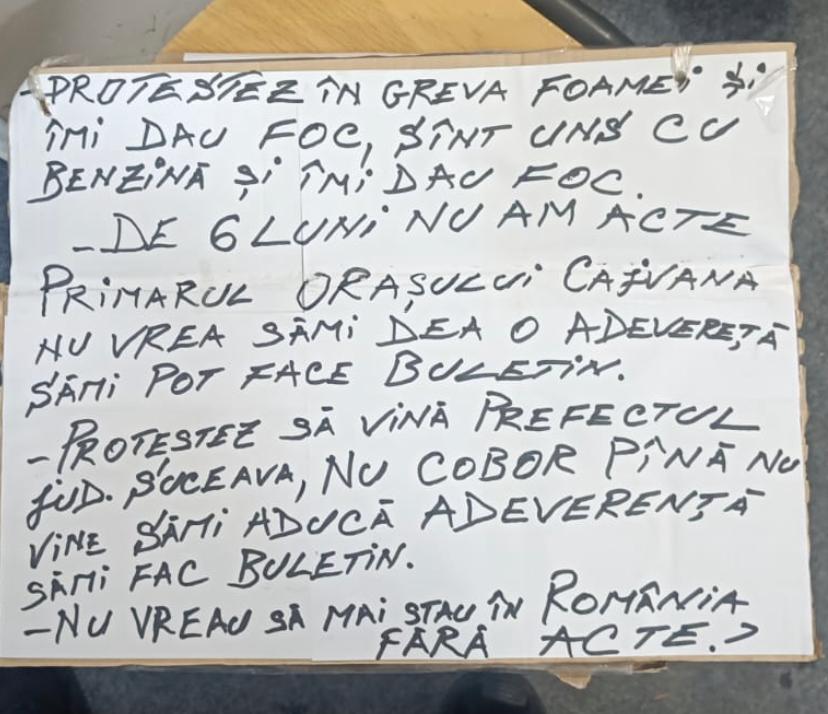 - PROTESTEZ ÎN GREVA FOAMEI ȘI
ÎMI DAU FOC, SÎNT UNS CU
BENZINĂ ȘI ÎMI DAU FOC.
- DE 6 LUNI NU AM ACTE
PRIMARUL ORAȘULUI CAJVANA
NU VREA SĂMI DEA O ADEVEREȚĂ
SĂMI POT FACE BULETIN.
- PROTESTEZ SĂ VINĂ PREFECTUL
JUD. SUCEAVA, NU COBOR PÎNĂ NU
VINE SĂMI ADUCĂ ADEVERENȚĂ
SĂMI FAC BULETIN.
- NU VREAU SĂ MAI STAU ÎN ROMÂNIA
FĂRĂ ACTE.?